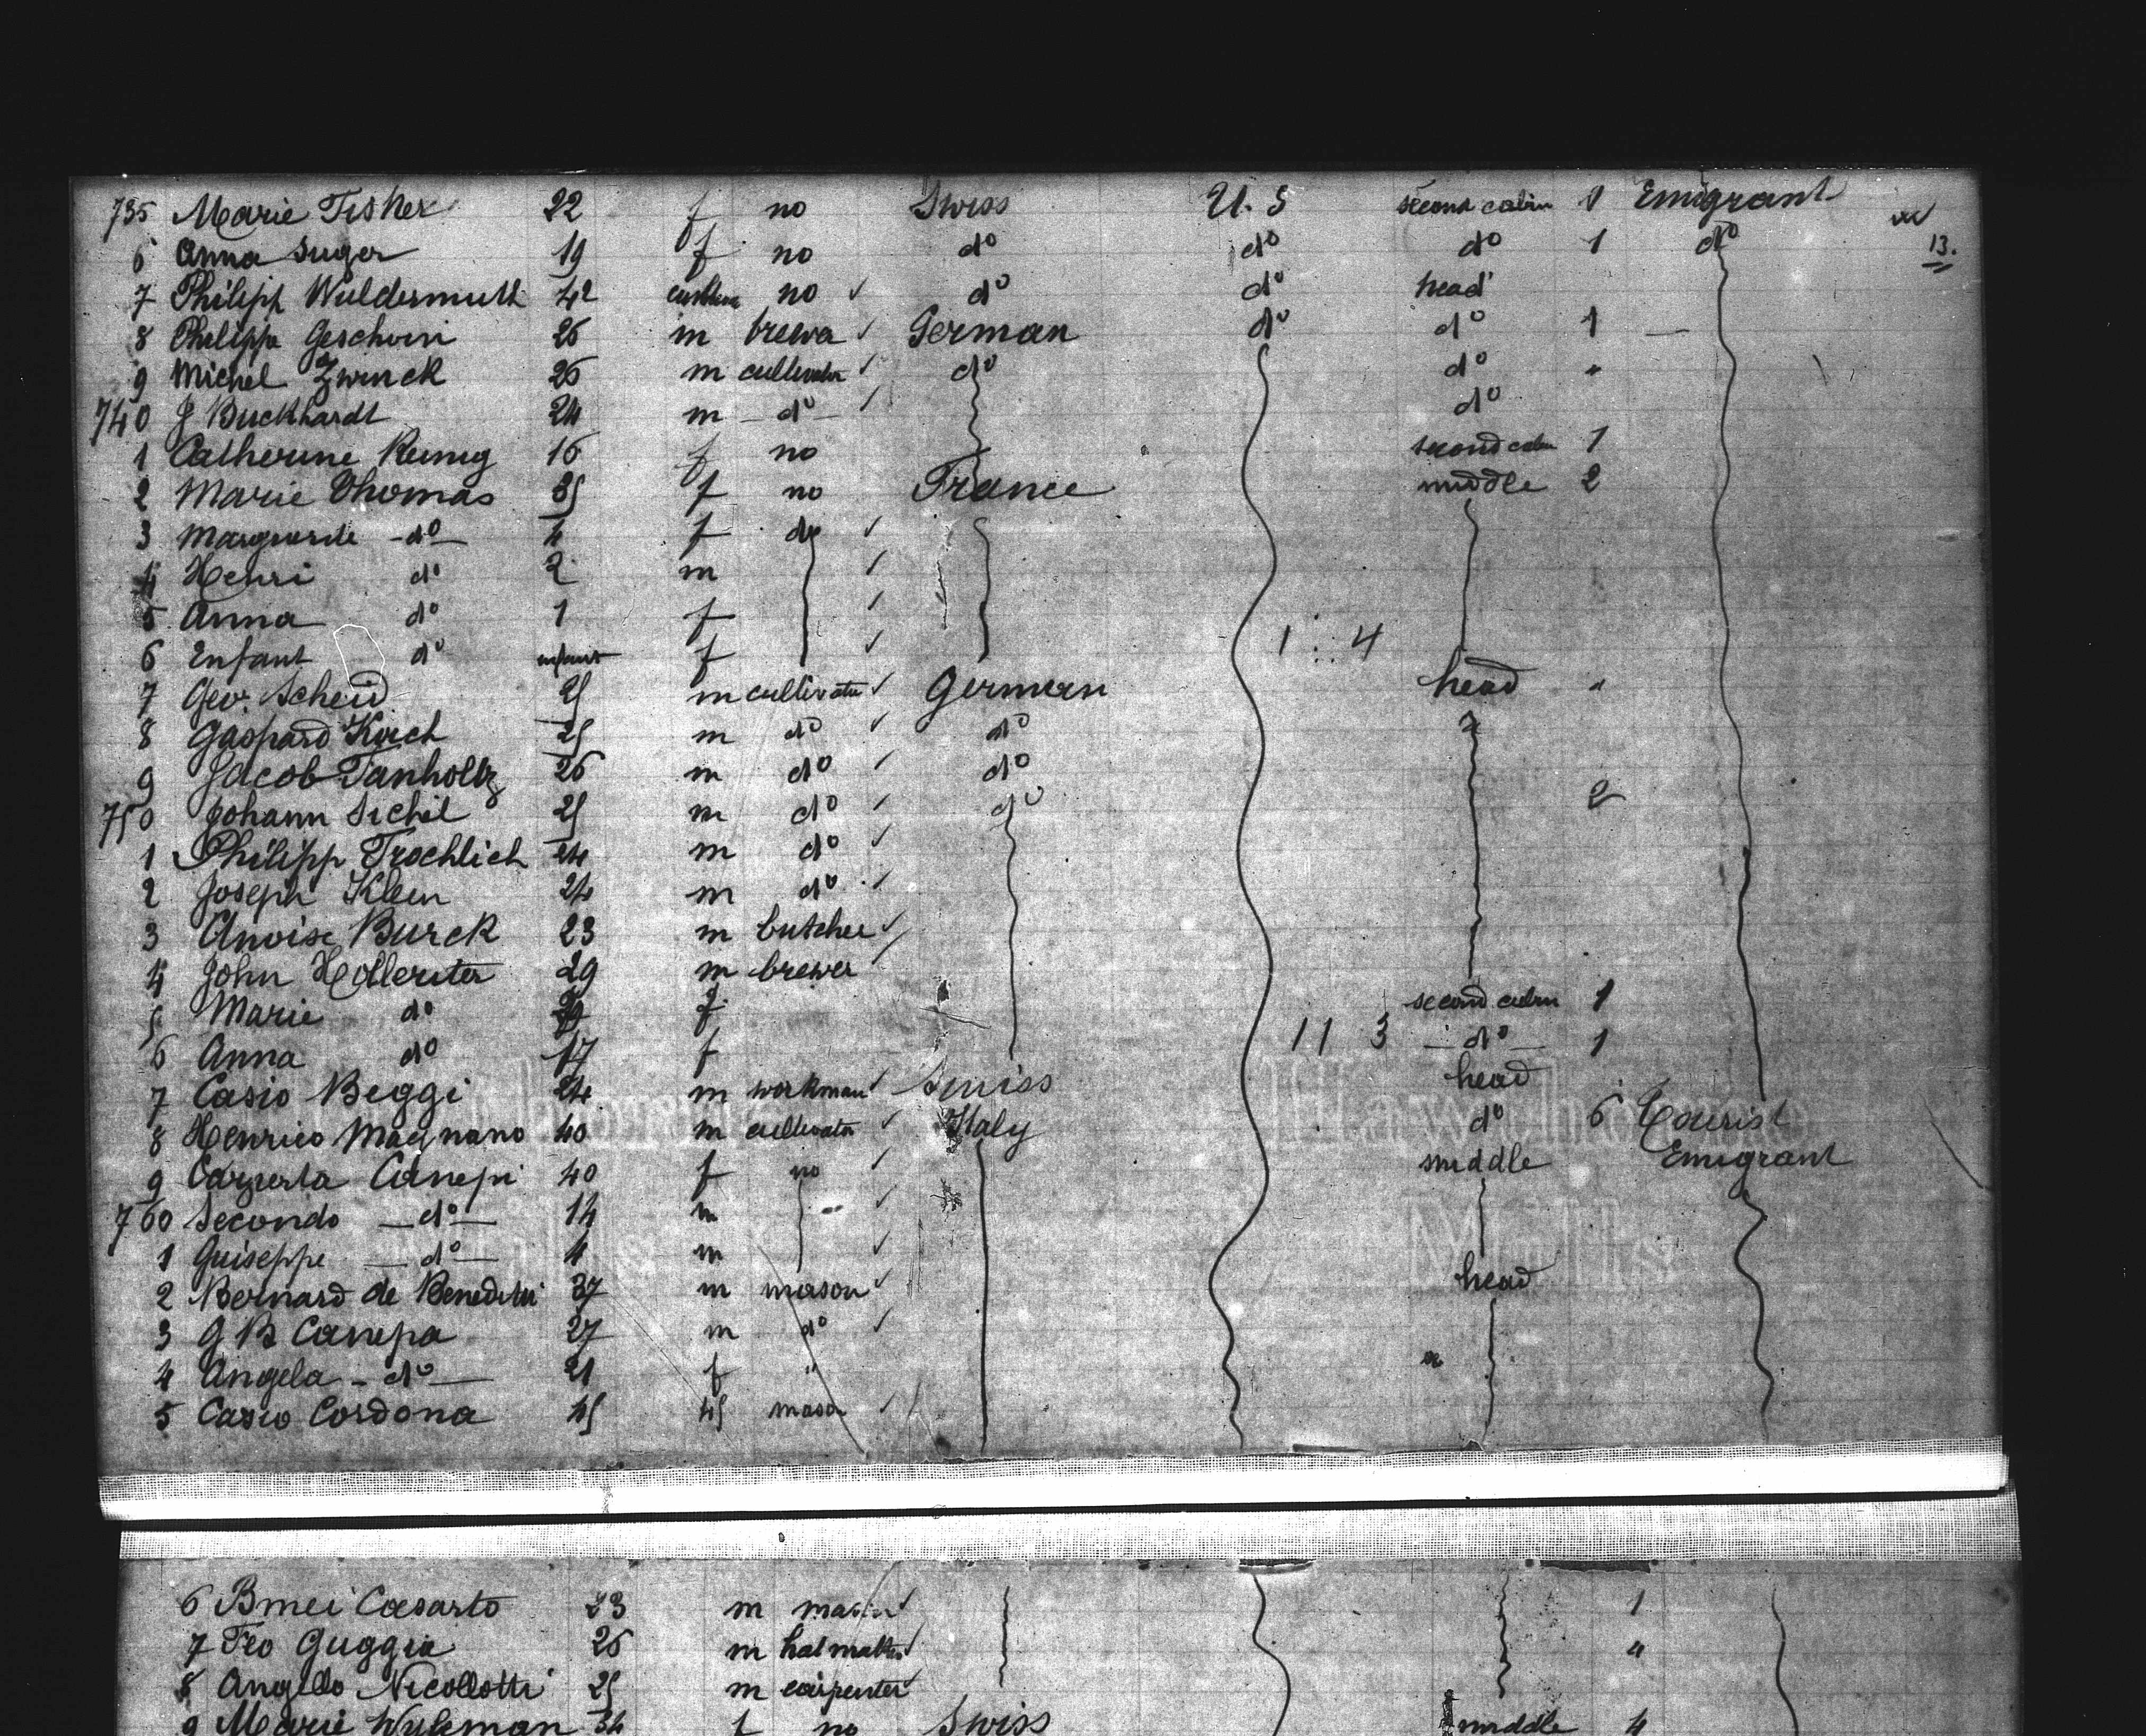 735 Marie Fisher 22 f no Swiss U.S second cabin 1 Emigrant
13.
6 Anna Suger 19 f no do do do 1 do
7 Philipp Wuldermuth 42 no do do head
8 Philippe Geschwin 26 m brewer German do do 1 —
9 Michel Zwinck 26 m cultivator do do "
740 J Buckhardt 24 m do do
1 Catherine Remig 16 f no second cabin 1
2 Marie Thomas 35 f no France middle 2
3 Marguerite do 4 f do
4 Henri do 2 m
5 Anna do 1 f
6 Enfant do infant f 1 4
7 Geo. Scheid 25 m cultivator German head "
8 Gaspard Koch 25 m do do
9 Jacob Tanholtz 26 m do do
750 Johann Sichel 25 m do do 2
1 Philipp Froehlich 24 m do
2 Joseph Klein 24 m do
3 Anoise Burck 23 m butcher
4 John Holleriter 29 m brewer
5 Marie do f second cabin 1
6 Anna do 17 f 11 3 do 1
7 Casio Beggi 24 m workman Swiss head
8 Henrico Magnano 40 m cultivator Italy do 6 Tourist
9 Canepi 40 f no middle Emigrant
760 Secondo do 14 m
1 Guiseppe do 4 m
2 Bernard de Benedetti 37 m mason head
3 G B Canepa 27 m do
4 Angela do 21 f "
5 Casio Cordona 45 45 mason
6 Bmei Casarto 23 m mason 1
7 Feo Guggia 26 m "
8 Angello Nicollotti 25 m carpenter
9 Marie Wykman 34 f no Swiss middle 4